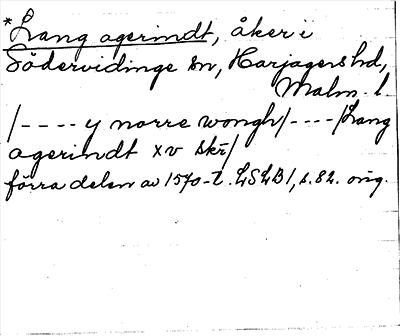 *Lang agerindt, åker i
Södervidinge sn, Harjagers hd,
Malm. l.
/---- y norre wongh/----/Lang
agerindt xv skr/
förra delen av 1570-t. LSLB1, s. 82. orig.